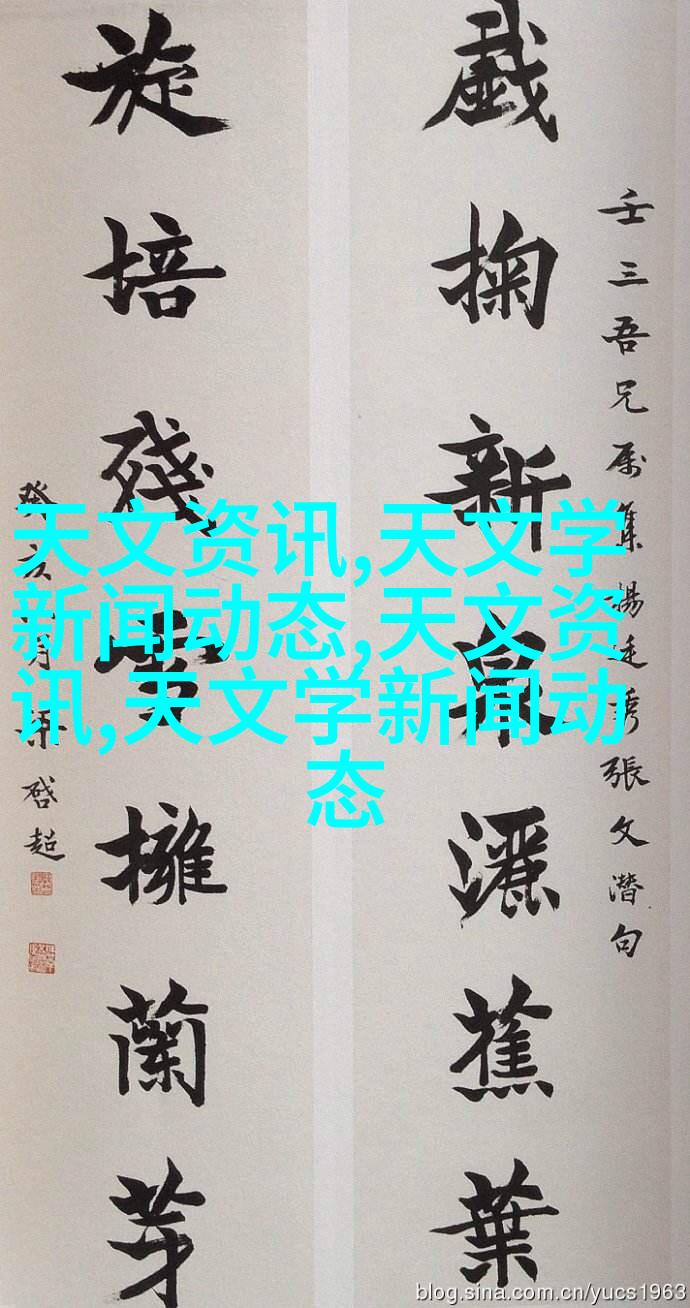 壬三吾兄属集楊廷秀張文潛句
戲掬新泉灑蕉葉
旋培殘雪擁蘭芽
癸亥月梁啓超
天文资讯,天文学
新闻动态,天文资
讯,天文学新闻动
态
blog.sina.com.cn/yucs1963